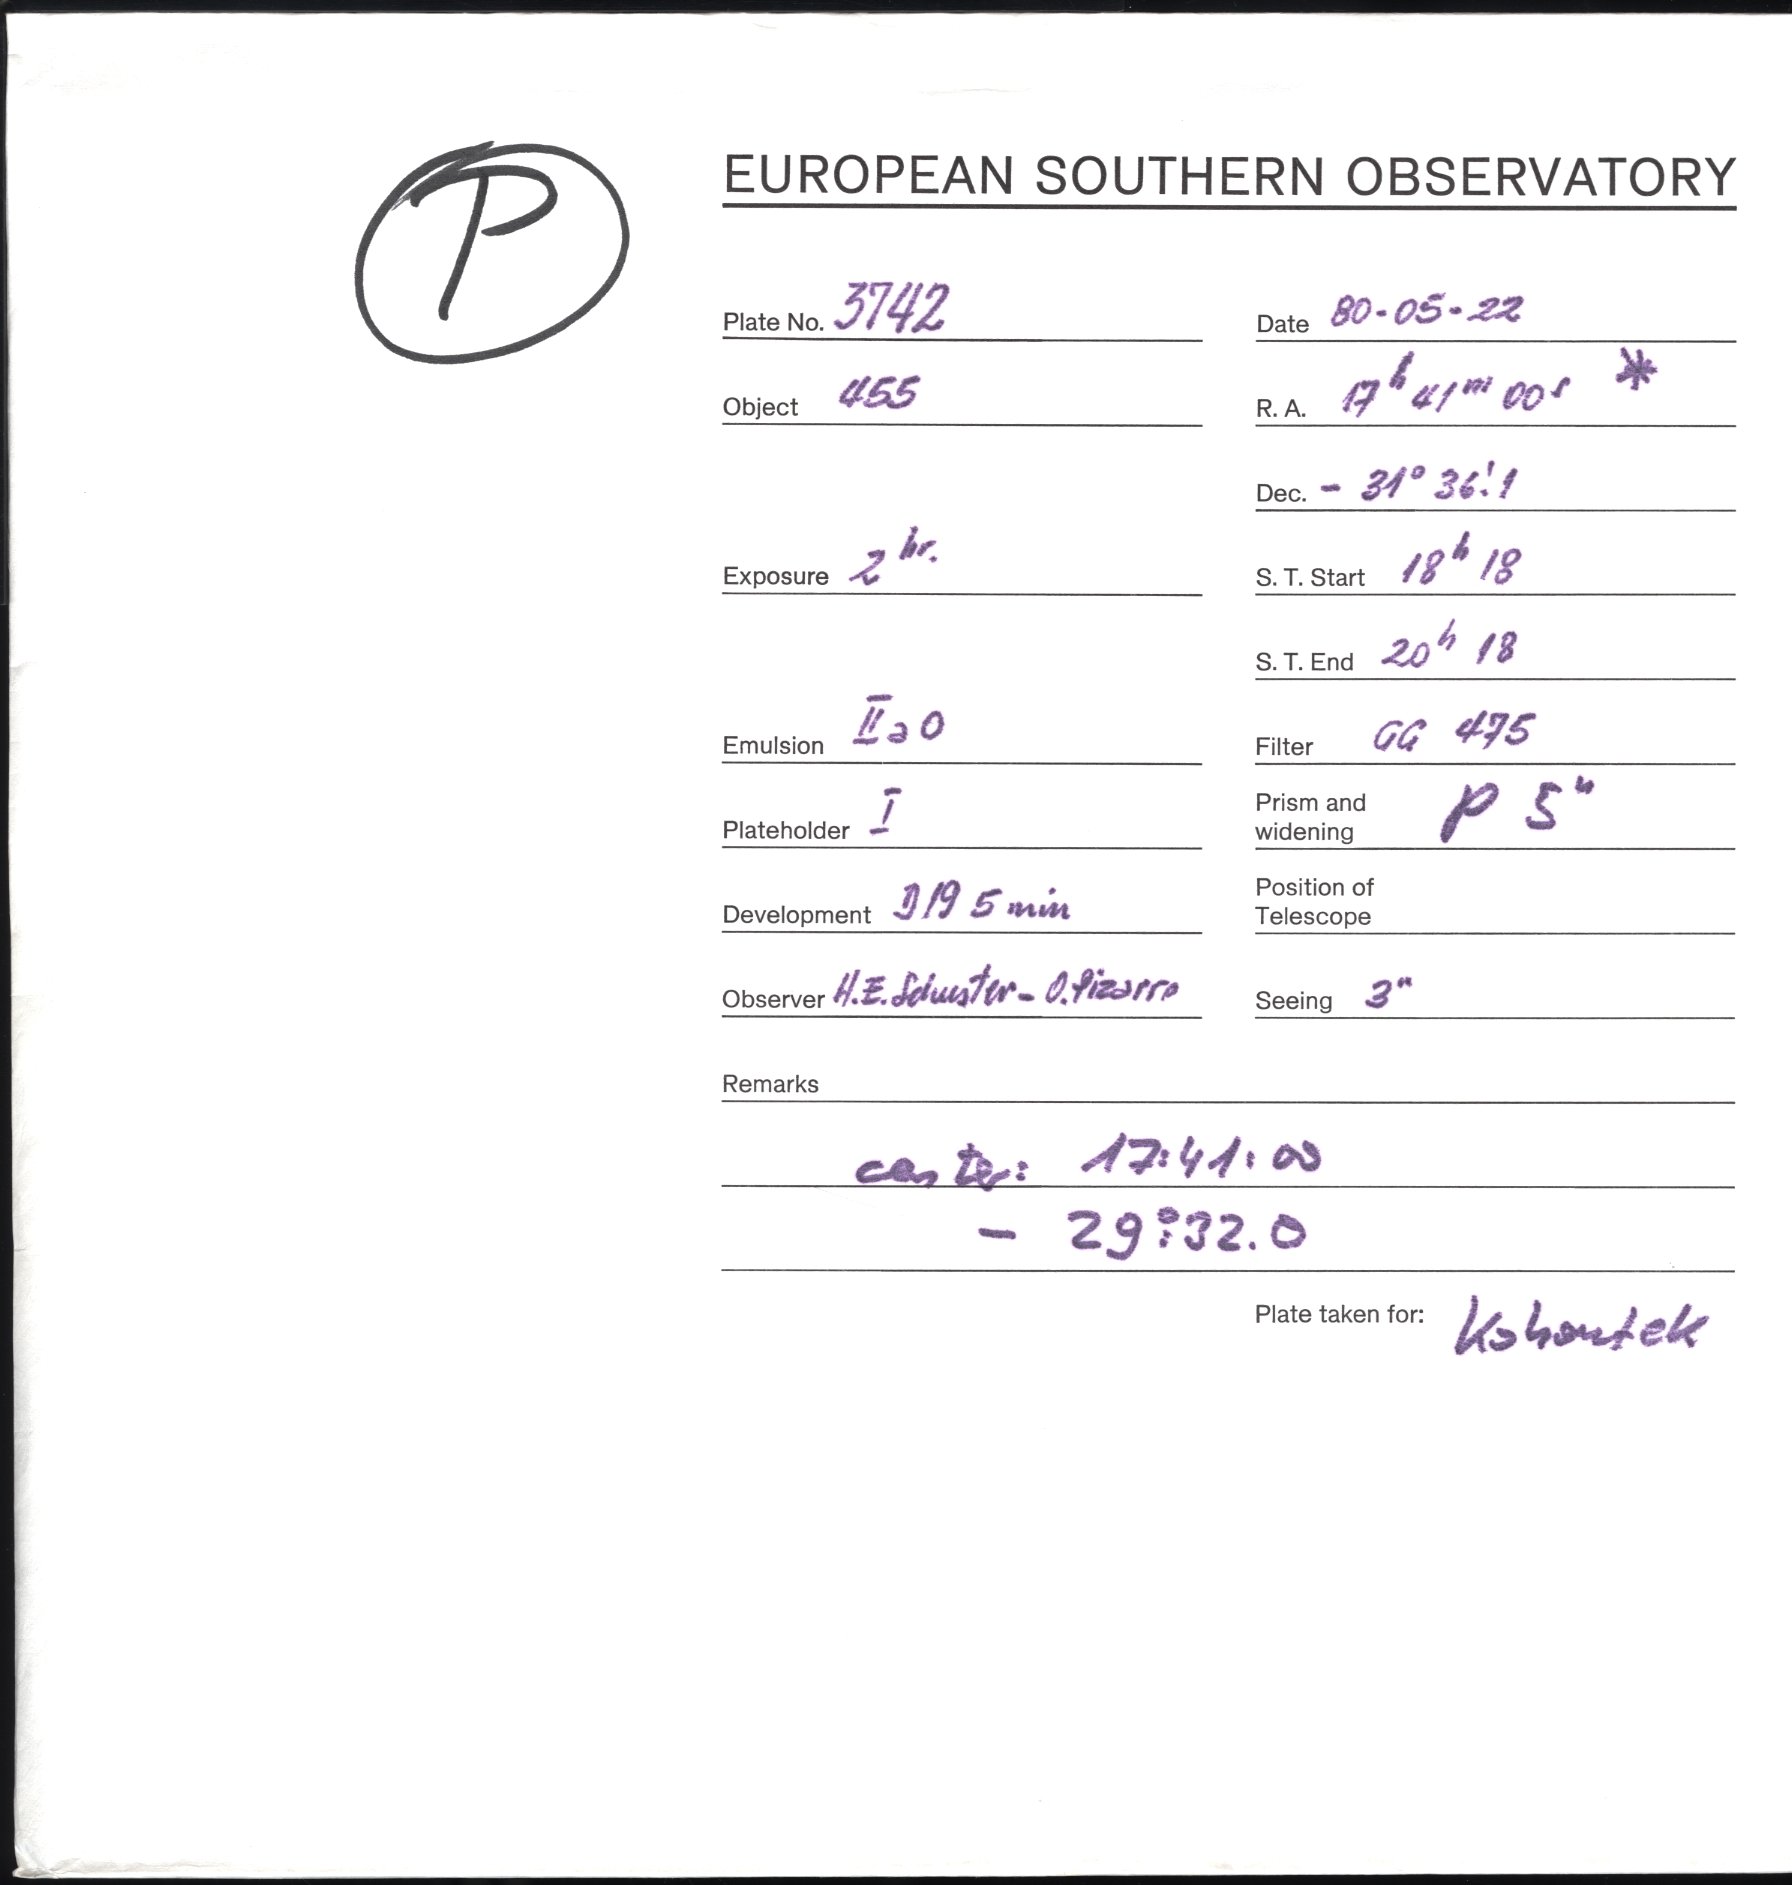 P
EUROPEAN SOUTHERN OBSERVATORY
Plate No. 3742
Date 80-05-22
Object 455
R. A. 17h 41m 00s *
Dec. - 31° 36!1
Exposure 2 hr.
S. T. Start 18h 18
S. T. End 20h 18
Emulsion IIaO
Filter GG 475
Plateholder I
Prism and
widening P 5"
Development D19 5 min
Position of
Telescope
Observer H.E. Schuster - O. Pizarro
Seeing 3"
Remarks
center: 17:41:00
- 29°:32.0
Plate taken for: Kohoutek